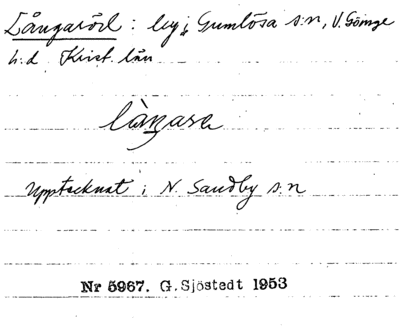 Långaröd : by i Gumlösa s:n, V. Göinge
h:d Krist. län
làŋara
Upptecknat i N. Sandby s:n
Nr 5967. G. Sjöstedt 1953